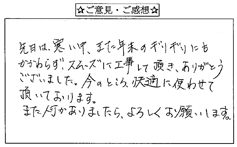 ☆ご意見・ご感想☆
先日は、寒い中、また年末のギリギリにも
かかわらずスムーズに工事して頂き、ありがとう
ございました。今のところ快適に使わせて
頂いております。
また何かありましたら、よろしくお願いします。